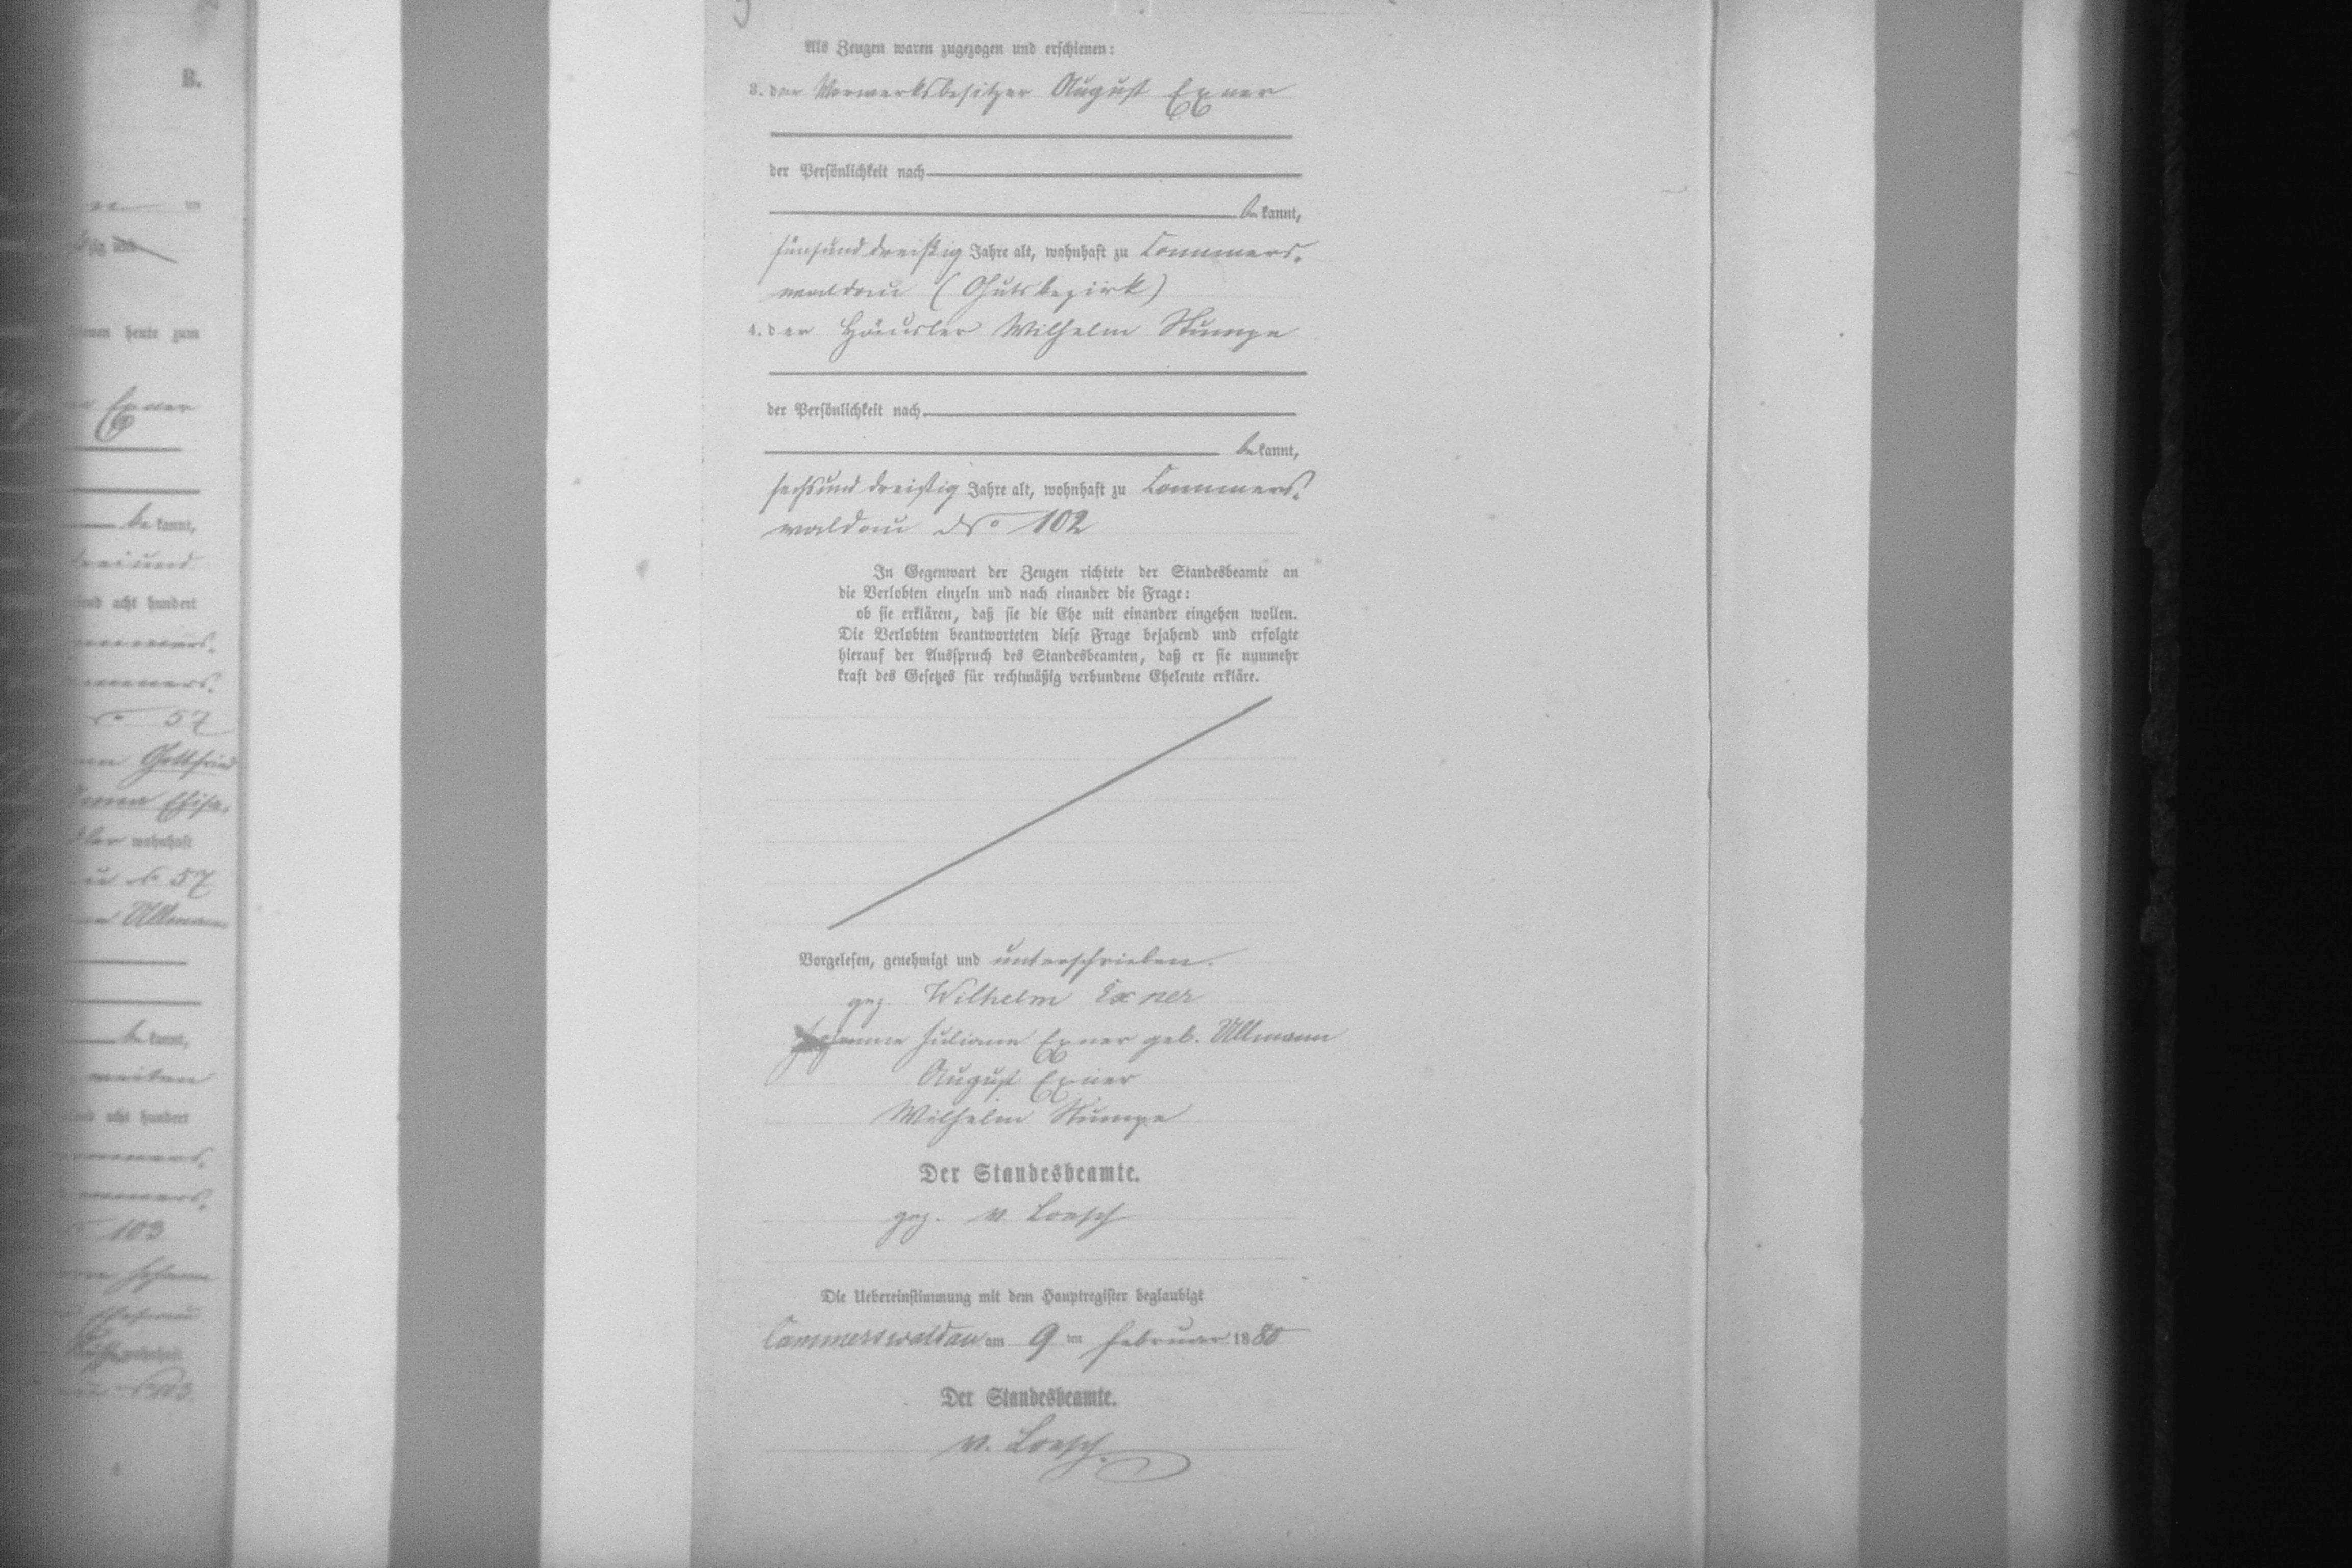 B.
heute zum
Exner
be kannt,
dreiund
acht hundert
57
Gottfried
wohnhaft
57
Ullmann
be kannt,
acht hundert
103
Als Zeugen waren zugezogen und erschienen:
3. der Vorwerksbesitzer August Exner
der Persönlichkeit nach
be kannt,
fünfunddreißig Jahre alt, wohnhaft zu Cammers-
waldau (Gutsbezirk)
4. der Häusler Wilhelm Stumpe
der Persönlichkeit nach
be kannt,
sechsunddreißig Jahre alt, wohnhaft zu Cammers-
waldau No 102
In Gegenwart der Zeugen richtete der Standesbeamte an
die Verlobten einzeln und nach einander die Frage:
ob sie erklären, daß sie die Ehe mit einander eingehen wollen.
Die Verlobten beantworteten diese Frage bejahend und erfolgte
hierauf der Ausspruch des Standesbeamten, daß er sie nunmehr
kraft des Gesetzes für rechtmäßig verbundene Eheleute erkläre.
Vorgelesen, genehmigt und unterschrieben.
gez. Wilhelm Exner
Johanne Juliane Exner geb. Ullmann
August Exner
Wilhelm Stumpe
Der Standesbeamte.
gez. v Loesch
Die Uebereinstimmung mit dem Hauptregister beglaubigt
Cammerswaldau am 9 ten Februar 1880
Der Standesbeamte.
v. Loesch.